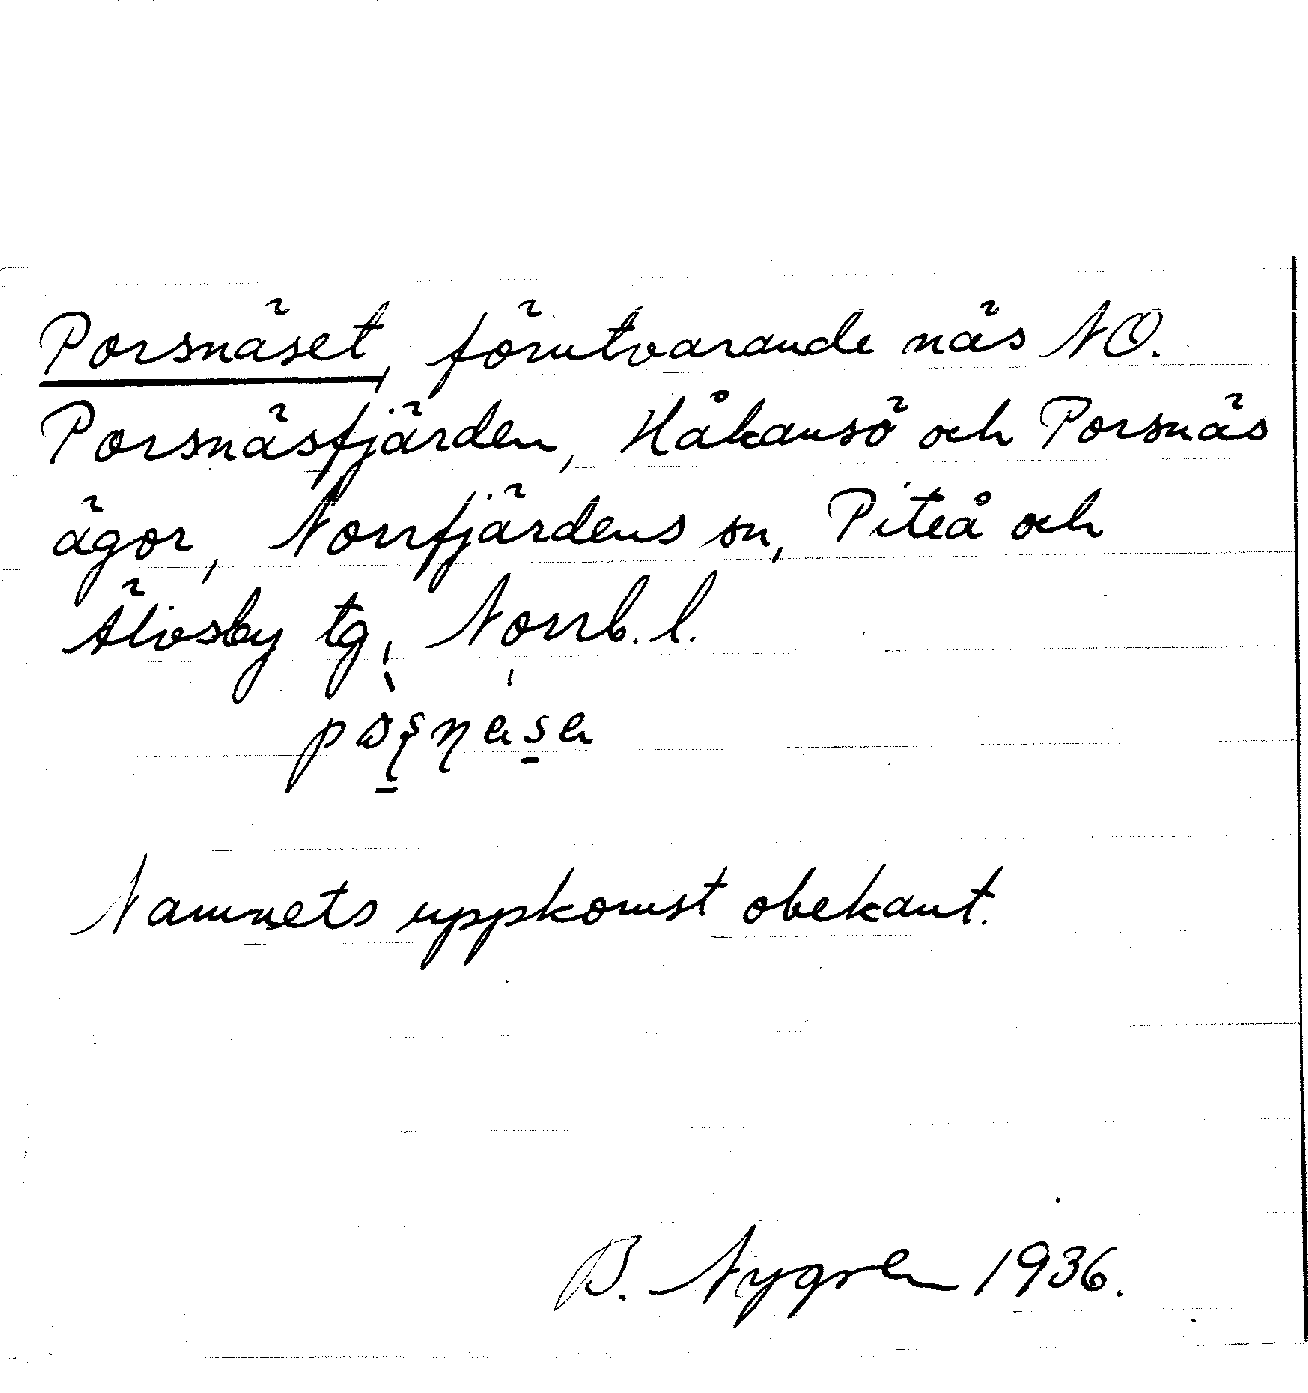 Porsnäset, förutvarande näs NO.
Porsnäsfjärden, Håkansö och Porsnäs
ägor, Norrfjärdens sn, Piteå och
Älvsby tg, Norrb. l.
Namnets uppkomst obekant.
B. Nygren 1936.